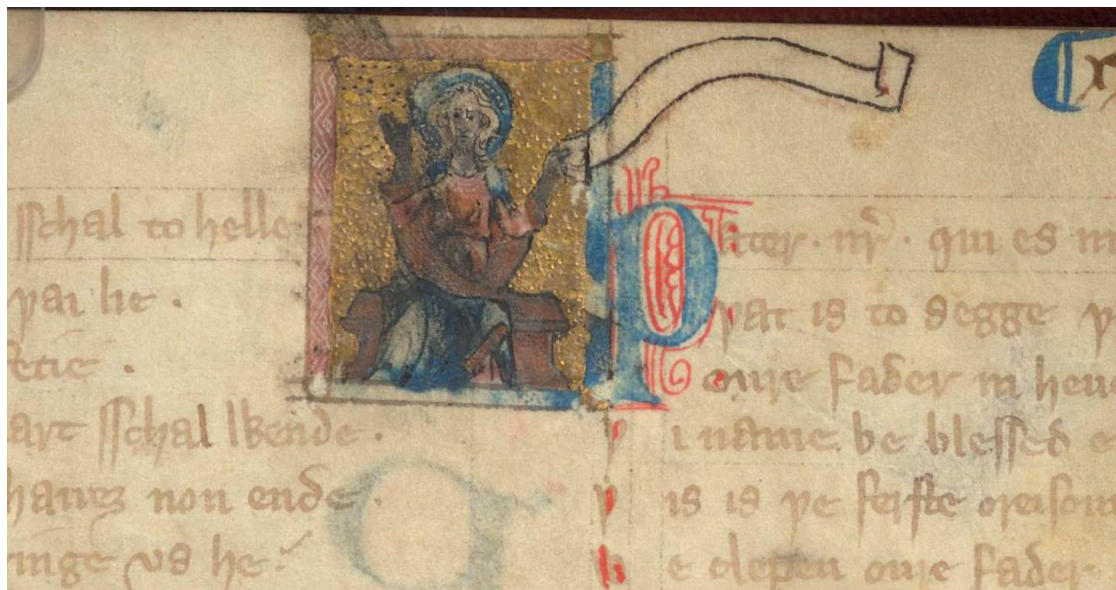 sschal to helle
þai he .
art sschal wende .
hauez non ende .
inge vs he
Pater . nr̄ . qui es in
þat is to segge þ
oure fader in heu
þi name be blessed e
þis is þe ferste oreisoun
he clepen oure fader